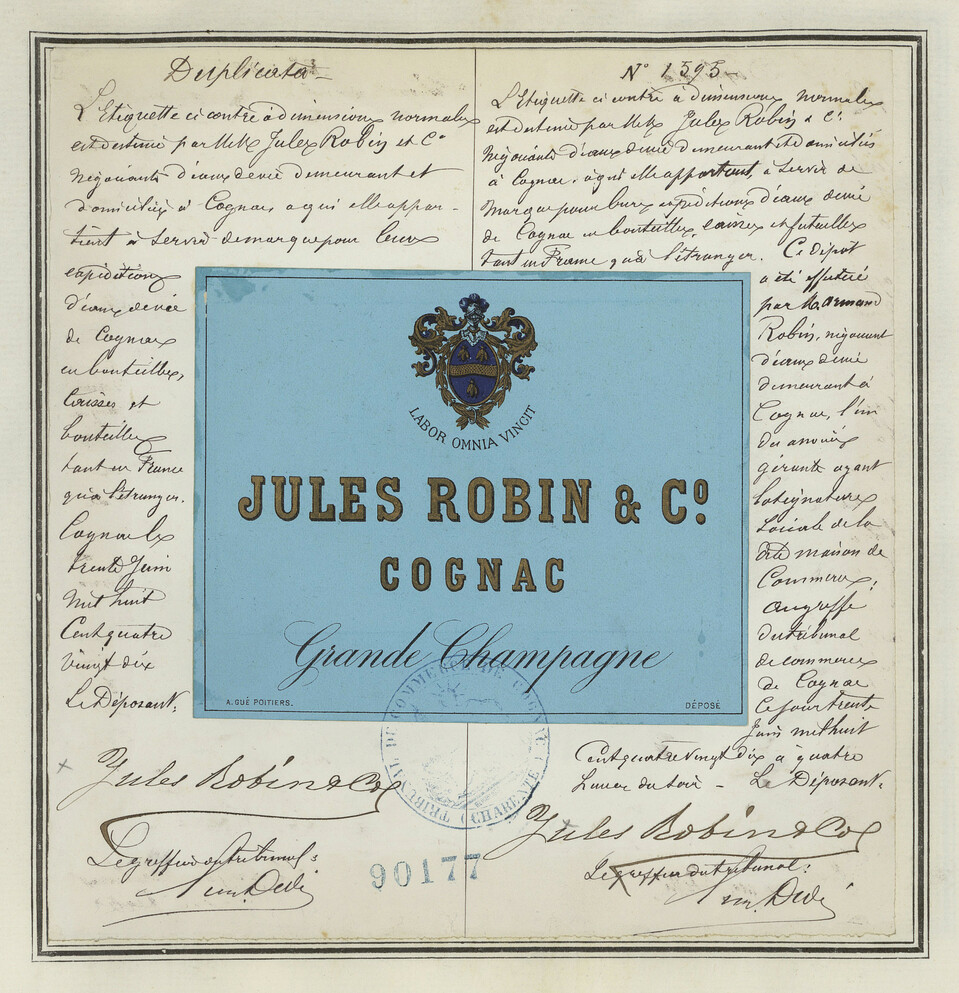 Duplicata
L'Etiquette ci contre à dimensions normales
est destinée par MM. Jules Robin et Cie
Négociants d'eaux de vie demeurant et
domiciliés à Cognac, a qui elle appar-
tient à servir de marque pour leurs
expéditions
d'eaux de vie
de Cognac
en bouteilles,
caisses et
bouteilles
tant en France
qu'à l'étranger.
Cognac le
trente Juin
mil huit
Cent quatre
vingt dix
Le Déposant,
Jules Robin & Co
Le greffier du tribunal:
N° 1595
L'Etiquette ci contre à dimensions normales
est destinée par MM. Jules Robin & Cie
Négociants d'eaux de vie demeurant et domiciliés
à Cognac, à qui elle appartient, à servir de
Marque pour leurs expéditions d'eaux de vie
de Cognac en bouteilles, caisses et futailles
tant en France qu'à l'étranger. Ce dépôt
a été effectué
par M. Armand
Robin, négociant
d'eaux de vie
demeurant à
Cognac, l'un
des associés
gérants ayant
la signature
sociale de la
dite maison de
Commerce,
au greffe
du tribunal
de commerce
de Cognac
ce jour trente
Juin mil huit
Cent quatre vingt dix à quatre
heures du soir - Le Déposant,
Jules Robin & Co
Le greffier du tribunal:
LABOR OMNIA VINCIT
JULES ROBIN & Co.
COGNAC
Grande Champagne
A. GUÉ POITIERS.
DÉPOSÉ
TRIBUNAL DE COMMERCE DE COGNAC (CHARENTE)
90177